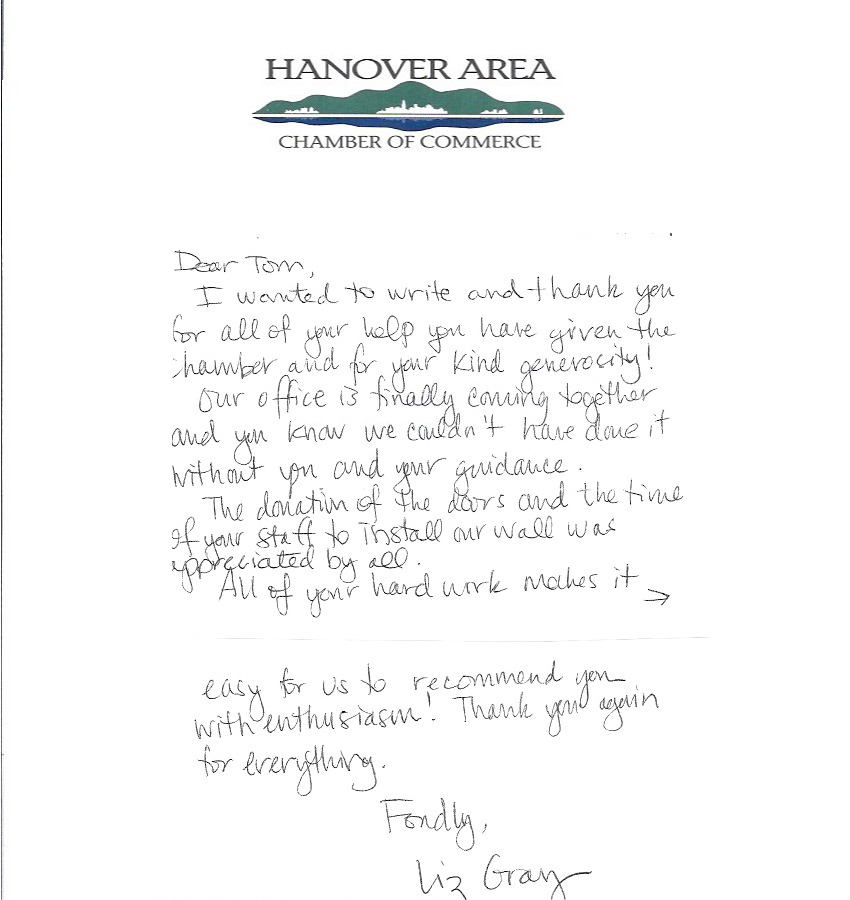 HANOVER AREA
CHAMBER OF COMMERCE
Dear Tom,
I wanted to write and thank you
for all of your help you have given the
chamber and for your kind generosity!
Our office is finally coming together
and you know we couldn't have done it
without you and your guidance.
The donation of the doors and the time
of your staff to install our wall was
appreciated by all.
All of your hard work makes it →
easy for us to recommend you
with enthusiasm! Thank you again
for everything.
Fondly,
Liz Gray